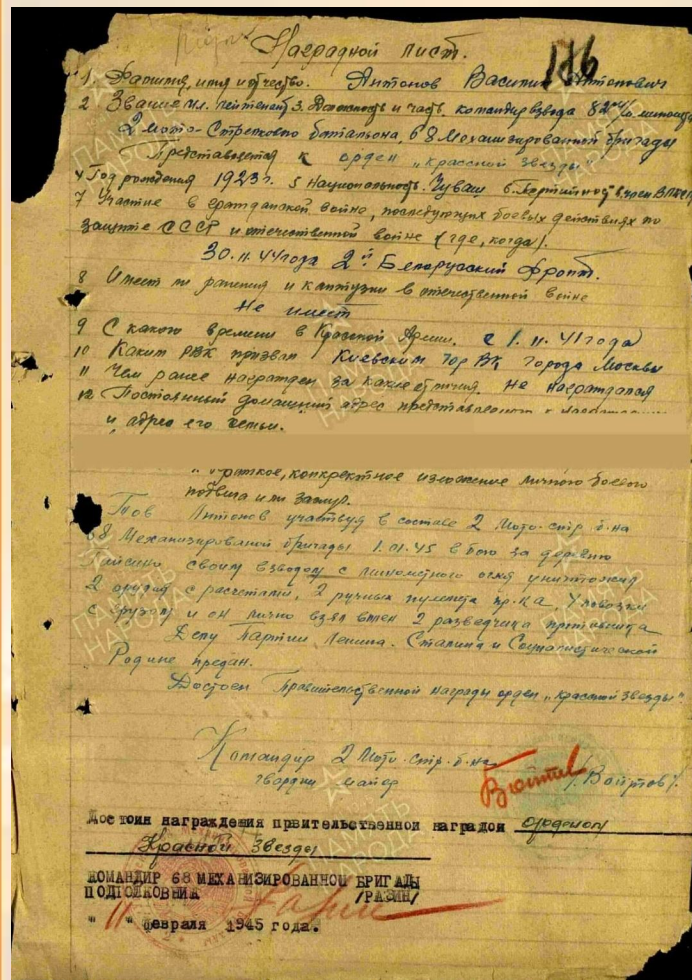 Наградной лист.
176
1. Фамилия, имя и отчество. Антонов Василий Антонович
2 Звание мл. лейтенант 3. Должность и часть. командир взвода 82 м/м миномета
2 мото-Стрелкового батальона, 68 Механизированной бригады
Представляется к орден „Красной Звезды"
4 Год рождения 1923 г. 5 Национальность. Чуваш 6. Партийность член ВЛКСМ
7 Участие в гражданской войне, последующих боевых действиях по
защите СССР и отечественной войне (где, когда).
30.11.44 года 2й Белорусский фронт.
8 Имеет ли ранения и контузии в отечественной войне
Не имеет
9 С какого времени в Красной Армии. с 1.11.41 года
10 Каким РВК призван Киевским Гор ВК города Москвы
11 Чем ранее награжден за какие отличия. Не награждался
12 Постоянный домашний адрес представляемого к
и адрес его семьи.
краткое, конкретное изложение личного боевого
подвига или заслуг.
Тов Антонов участвуя в составе 2 Мото-стр. б-на
68 Механизированой бригады 1.01.45 в бою за деревню
своим взводом с минометного огня уничтожил
2 орудия с расчетами, 2 ручных пулемета пр-ка, 4 повозки
с грузом и он лично взял в плен 2 разведчика противника
Делу Партии Ленина. Сталина и Социалистической
Родине предан.
Достоен Правительственной награды орден „Красной Звезды"
Командир 2 Мото-стр. б-на
гвардии майор
Достоин награждения првительственной наградой Орденом
Красной Звезды
КОМАНДИР 68 МЕХАНИЗИРОВАННОЙ БРИГАДЫ
ПОДПОЛКОВНИК /РАЗИН/
" 11 " февраля 1945 года.
ПАМЯТЬ НАРОДА